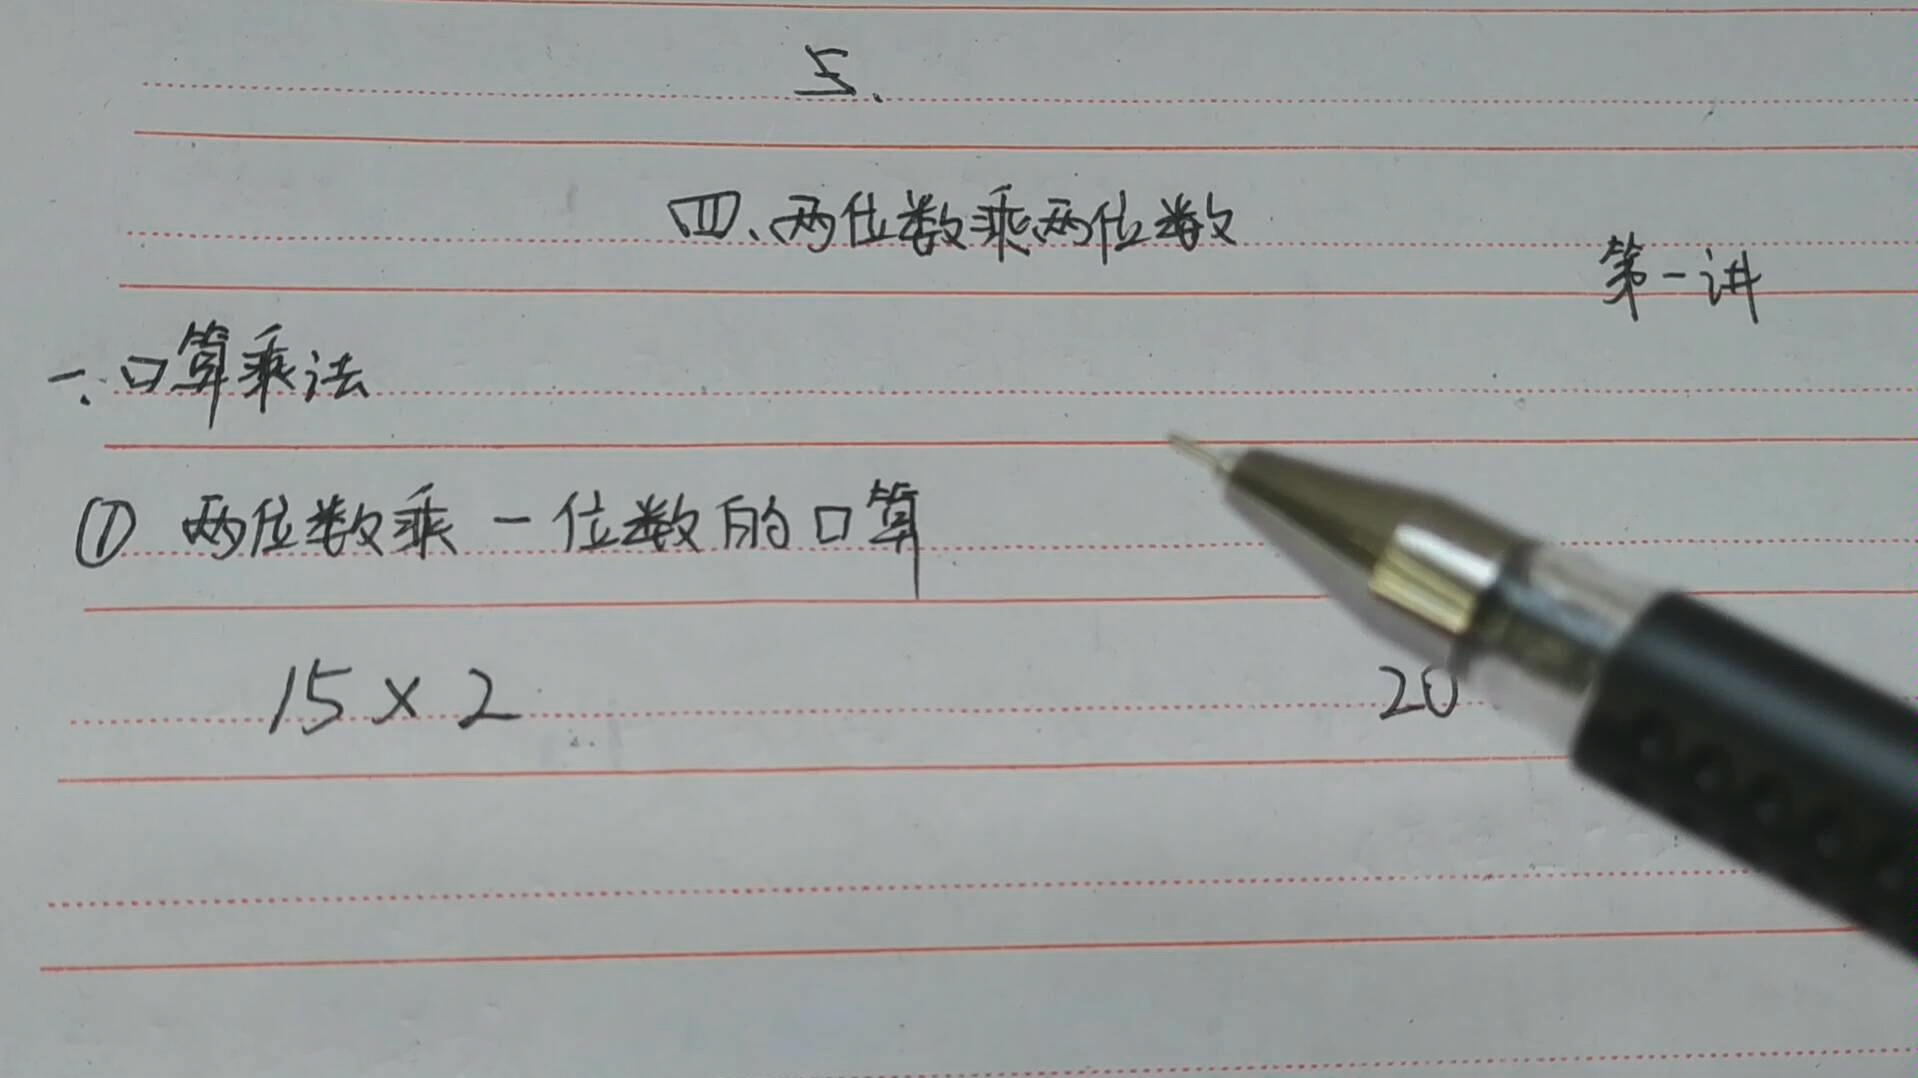 5.
四、两位数乘两位数
第一讲
一.口算乘法
① 两位数乘一位数的口算
15×2
20